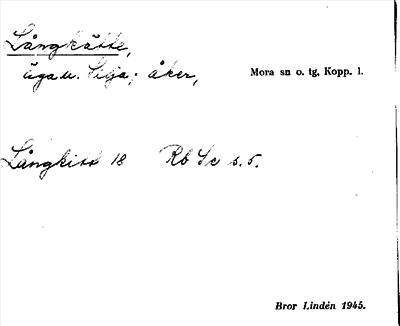 Långkätte,
ägan. Silja; åker,
Mora sn o. tg, Kopp. l.
Långkitt 18 Rb Sc s. 5.
Bror Lindén 1945.